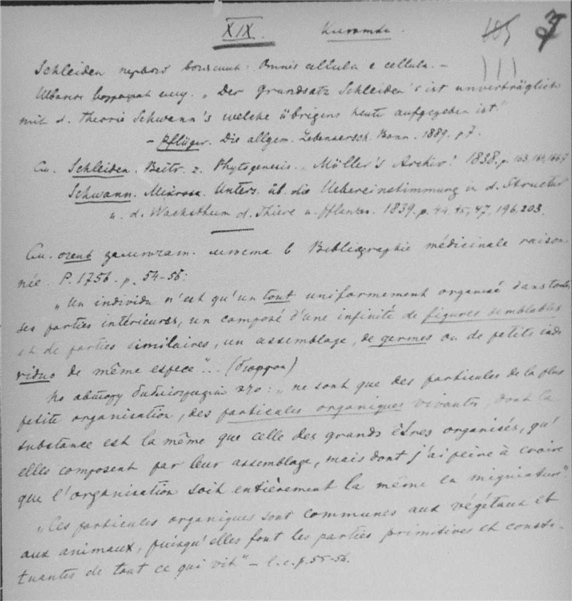 XIX. Клетка. 185 3
Schleiden первый Omnis cellula e cellula. –
„Der Grundsatz Schleiden's ist unverträglich
mit d. Theorie Schwann's welche übrigens heute aufgegeben ist"
– Pflüger. Die allgem. Lebensersch. Bonn. 1889. p. 7.
См. Schleiden. Beitr. z. Phytogenesis. Müller's Archiv. 1838. p.
Schwann. Microsc. Unters. üb. die Uebereinstimmung in d. Structur
u. d. Wachsthum d. Thiere u. Pflanzen. 1839. p. 44, 45, 47, 196, 203.
См. очень замечат. места в Bibliographie médicinale raison-
née. P. 1756. p. 54–56:
„Un individu n'est qu'un tout uniformement organisé dans toutes
ses parties intérieures, un composé d'une infinité de figures semblables
et de parties similaires, un assemblage de germes ou de petits indi
vidus de même espece"... (Бюффон)
По автору библиографии это: „ne sont que des particules de la plus
petite organisation, des particules organiques vivantes, dont la
substance est la même que celle des grands êtres organisés, qu'
elles composent par leur assemblage, mais dont j'ai peine à croire
que l'organisation soit entièrement la même en migniature".
„Ces particules organiques sont communes aux végétaux et
aux animaux, puisqu'elles font les parties primitives et consti-
tuantes de tout ce qui vit" – l. c. p. 55–56.